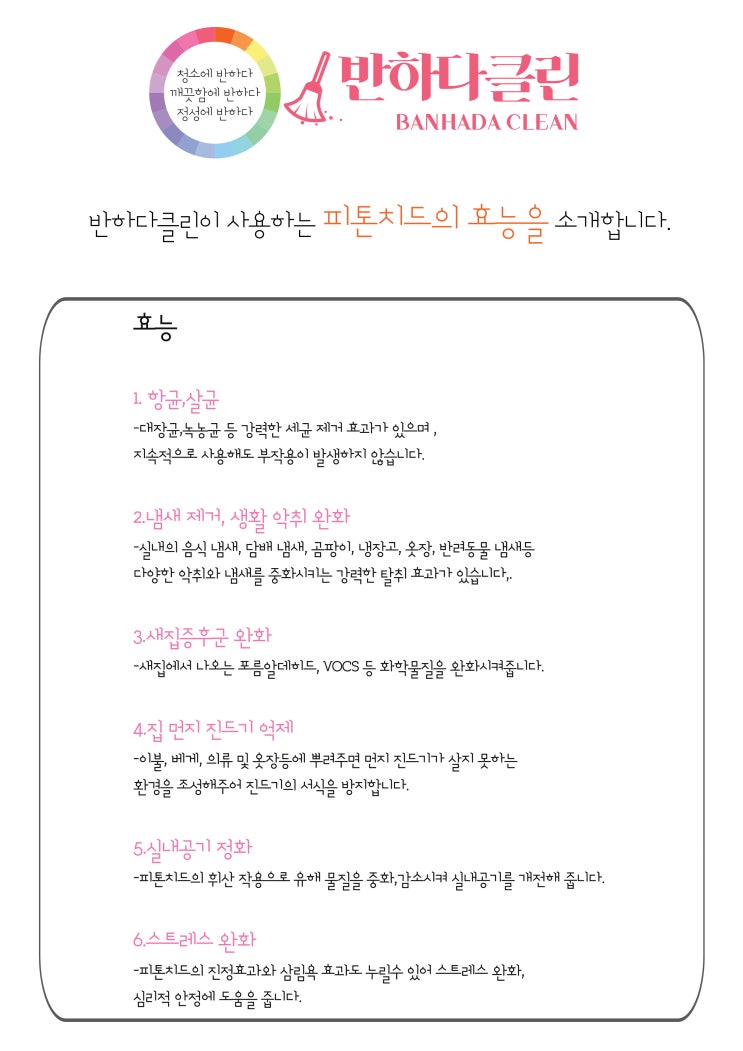 청소에 반하다
깨끗함에 반하다
정성에 반하다
반하다클린
BANHADA CLEAN
반하다클린이 사용하는 피톤치드의 효능을 소개합니다.
효능
1. 항균,살균
-대장균,녹농균 등 강력한 세균 제거 효과가 있으며 ,
지속적으로 사용해도 부작용이 발생하지 않습니다.
2.냄새 제거, 생활 악취 완화
-실내의 음식 냄새, 담배 냄새, 곰팡이, 냉장고, 옷장, 반려동물 냄새등
다양한 악취와 냄새를 중화시키는 강력한 탈취 효과가 있습니다,.
3.새집증후군 완화
-새집에서 나오는 포름알데히드, VOCS 등 화학물질을 완화시켜줍니다.
4.집 먼지 진드기 억제
-이불, 베게, 의류 및 옷장등에 뿌려주면 먼지 진드기가 살지 못하는
환경을 조성해주어 진드기의 서식을 방지합니다.
5.실내공기 정화
-피톤치드의 휘산 작용으로 유해 물질을 중화,감소시켜 실내공기를 개전해 줍니다.
6.스트레스 완화
-피톤치드의 진정효과와 삼림욕 효과도 누릴수 있어 스트레스 완화,
심리적 안정에 도움을 줍니다.